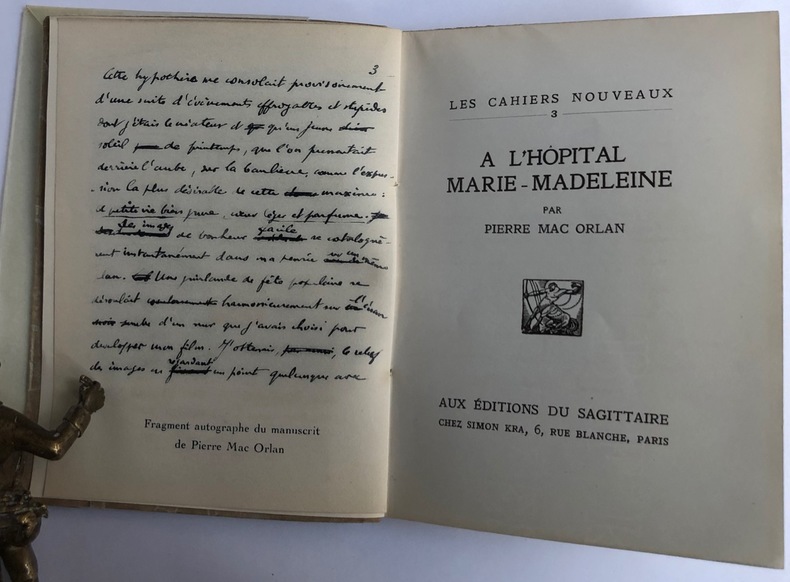 3
Cette hypothèse me consolait provisoirement
d'une suite d'événements effroyables et stupides
dont j'étais le créateur et qu'un jeune
soleil de printemps, que l'on pressentait
derrière l'aube, sur la banlieue, comme l'expres-
-sion la plus désirable de cette maxime :
petite vie bien pure, cœur léger et parfumé.
de bonheur facile se catalogué-
rent instantanément dans ma pensée
Une guirlande de fête populaire se
déroulait harmonieusement sur l'écran
d'un mur que j'avais choisi pour
développer mon film. J'obtenais, le relief
des images en regardant un point quelconque avec
Fragment autographe du manuscrit
de Pierre Mac Orlan
LES CAHIERS NOUVEAUX
3
A L'HÔPITAL
MARIE-MADELEINE
PAR
PIERRE MAC ORLAN
AUX ÉDITIONS DU SAGITTAIRE
CHEZ SIMON KRA, 6, RUE BLANCHE, PARIS